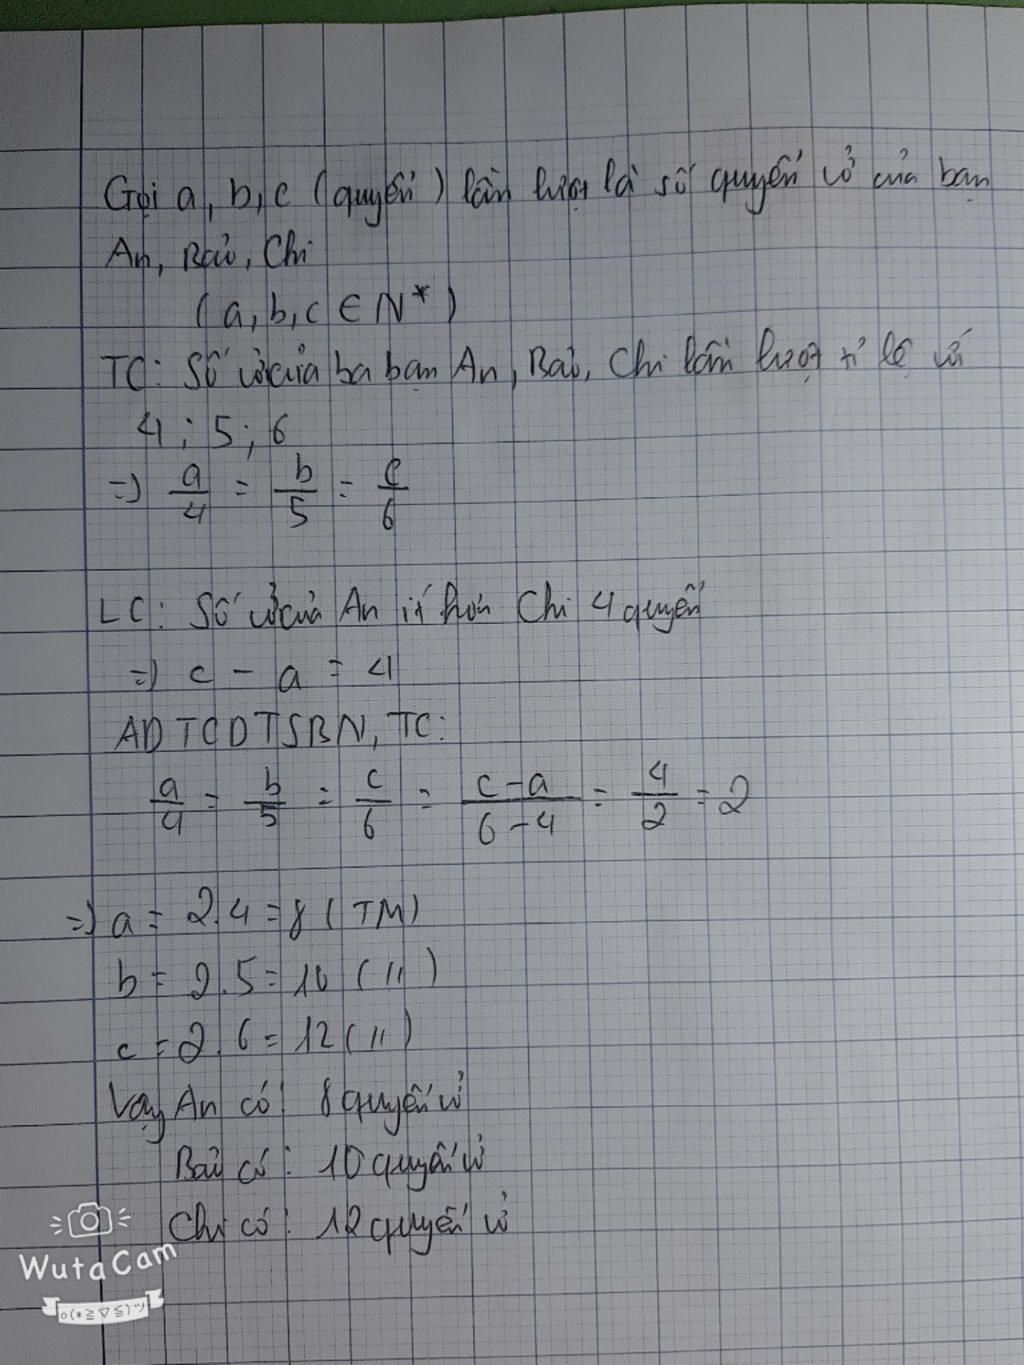 Gọi a, b, c (quyển) lần lượt là số quyển vở của bạn
An, Bảo, Chi
(a, b, c ∈ N*)
TC: Số vở của ba bạn An, Bảo, Chi lần lượt tỉ lệ với
4; 5; 6
=> a/4 = b/5 = c/6
LC: Số vở của An ít hơn Chi 4 quyển
=> c - a = 4
ADTCDTSBN, TC:
a/4 = b/5 = c/6 = c-a/6-4 = 4/2 = 2
=> a = 2.4 = 8 (TM)
b = 2.5 = 10 (")
c = 2.6 = 12 (")
Vậy An có: 8 quyển vở
Bảo có: 10 quyển vở
Chi có: 12 quyển vở
WutaCam
o(*≧▽≦)ツ